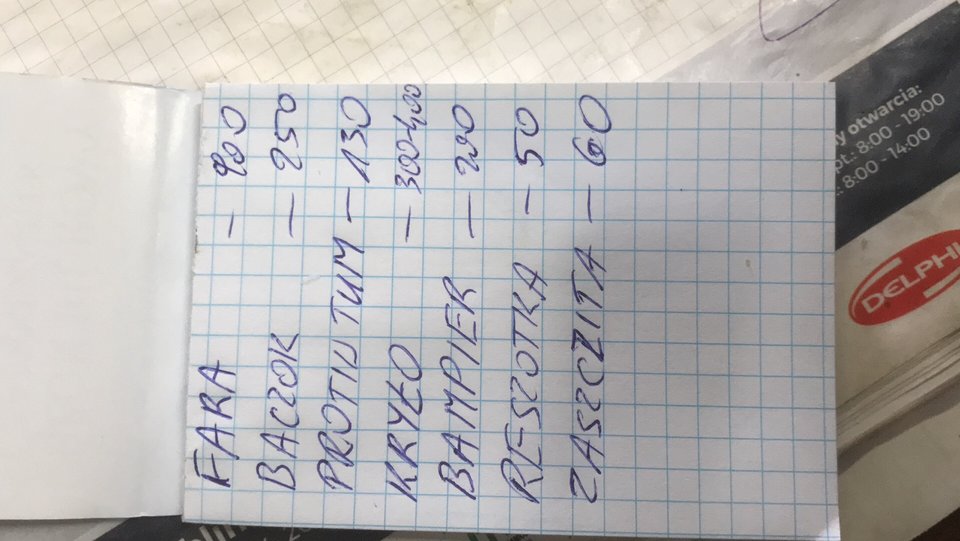 FARA – 200
BACZOK – 250
PROTIW TUM – 130
KRYŁO – 300-400
BAMPIER – 200
RESZOTKA – 50
ZASZCZITA – 60
y otwarcia:
pt.: 8:00 - 19:00
.: 8:00 - 14:00
DELPHI